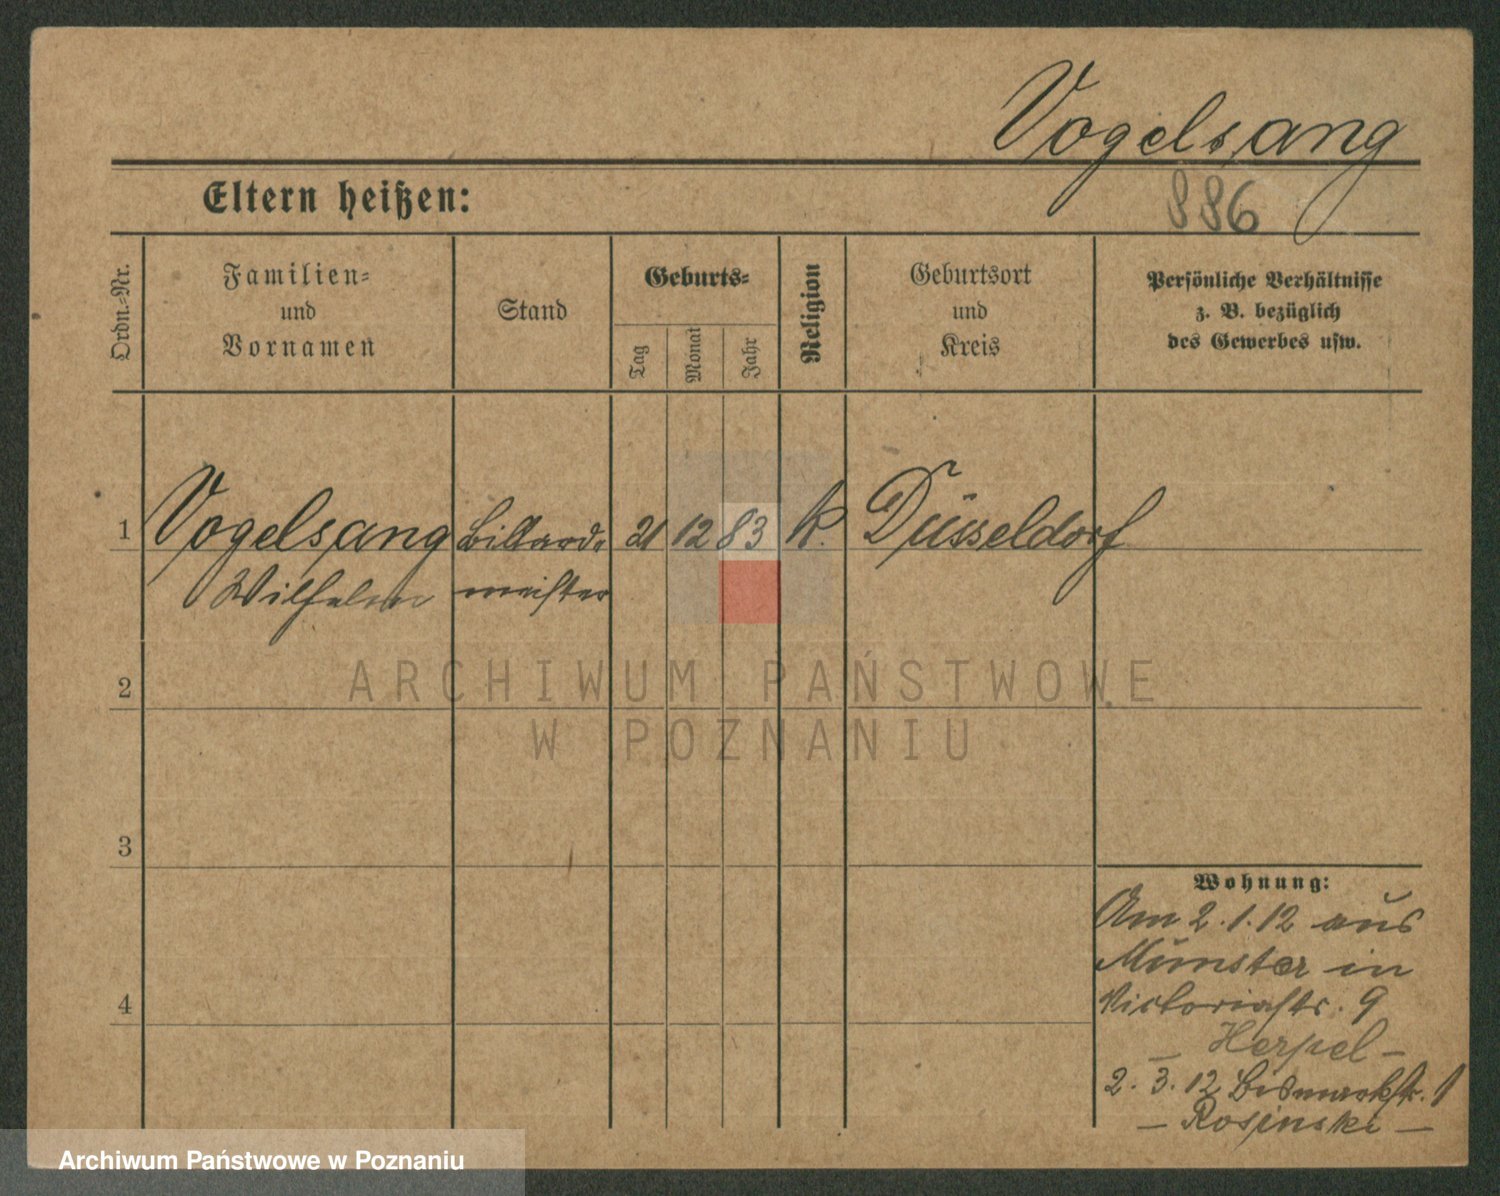 Vogelsang
Eltern heißen:
886
Ordn.-Nr.
Familien-
und
Vornamen
Stand
Geburts-
Tag
Monat
Jahr
Religion
Geburtsort
und
Kreis
Persönliche Verhältnisse
z. B. bezüglich
des Gewerbes usw.
1 Vogelsang Billard- 21 12 83 k. Düsseldorf
Wilhelm meister
2
3
4
Wohnung:
Am 2.1.12 aus
Münster in
Victoriastr. 9
– Herpel –
2. 3. 12 Bismarckstr. 1
– Rosinski –
ARCHIWUM PAŃSTWOWE
W POZNANIU
Archiwum Państwowe w Poznaniu